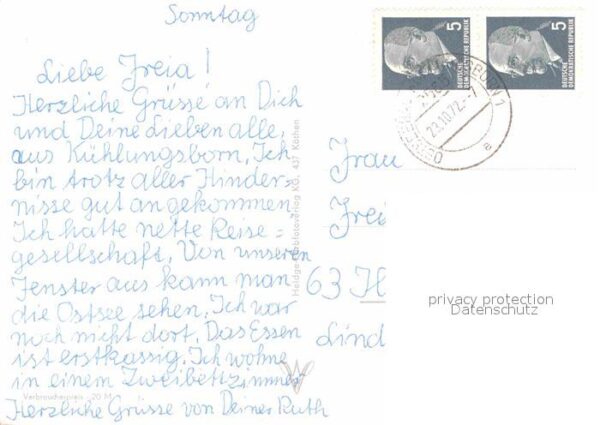 Sonntag
Liebe Freia!
Herzliche Grüsse an Dich
und Deine Lieben alle,
aus Kühlungsborn. Ich
bin trotz aller Hinder-
nisse gut angekommen.
Ich hatte nette Reise=
gesellschaft. Von unseren
Fenster aus kann man
die Ostsee sehen. Ich war
noch nicht dort. Das Essen
ist erstkassig. Ich wohne
in einem Zweibettzimmer
Herzliche Grüsse von Deiner Ruth
Verbraucherpreis -,20 M
437 Köthen
5
DEUTSCHE
DEMOKRATISCHE REPUBLIK
5
DEUTSCHE
DEMOKRATISCHE REPUBLIK
23.10.72
OSTSEEBAD
e
Frau
Frei
63
Lind
privacy protection
Datenschutz